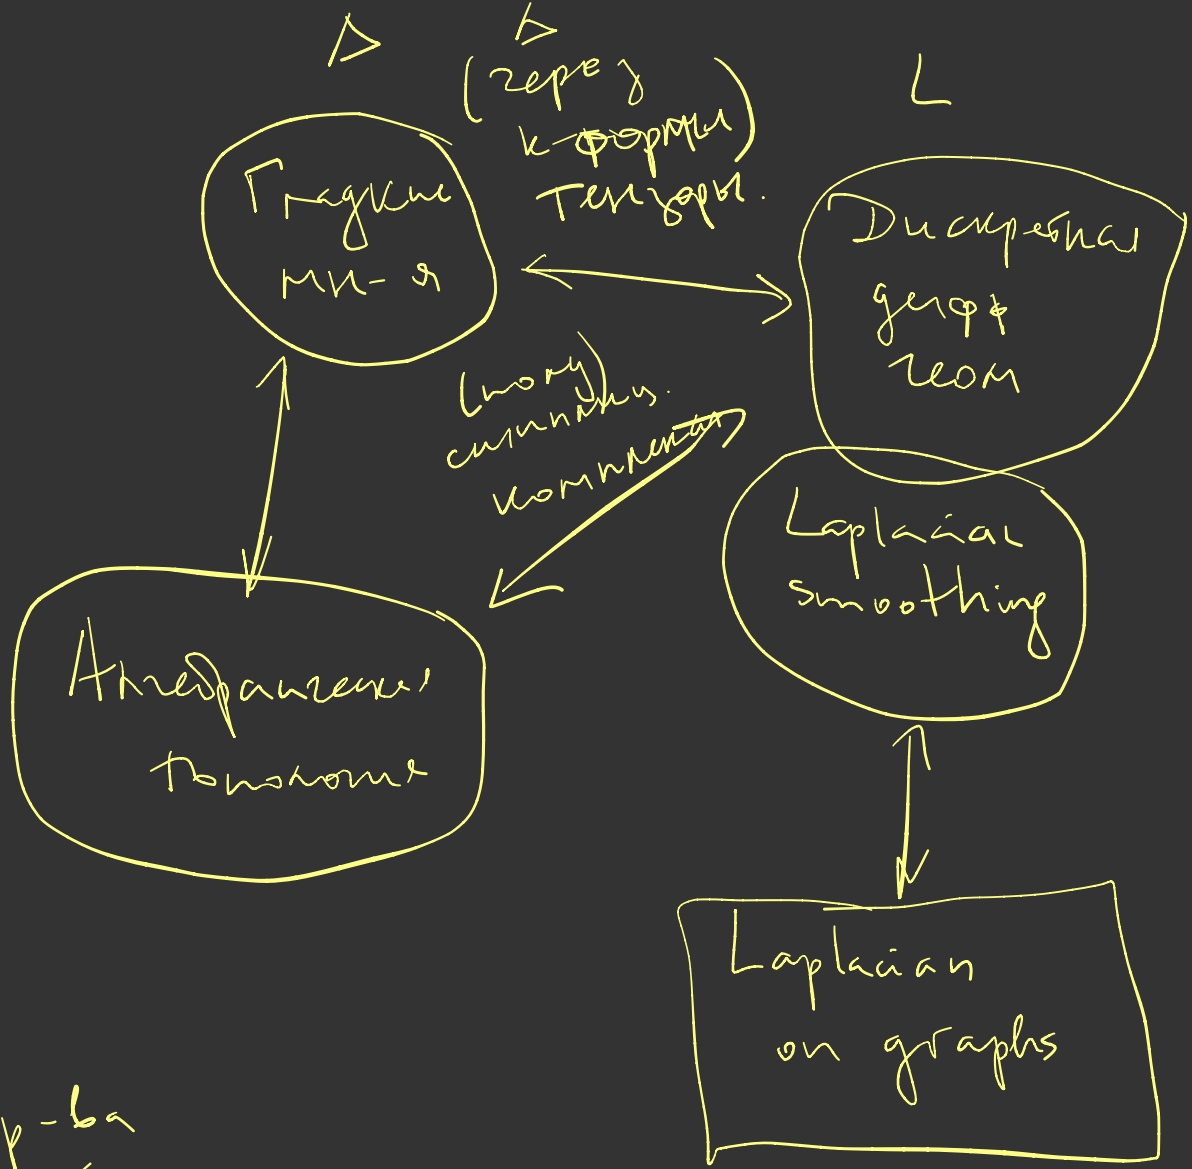 Δ
Δ
L
(через
к-формы)
тензоры.
Гладкие
мн-я
Дискретная
дифф
геом
(полу)
симплиц.
комплексы
Laplacian
smoothing
Алгебраическая
топология
Laplacian
on graphs
р-ва